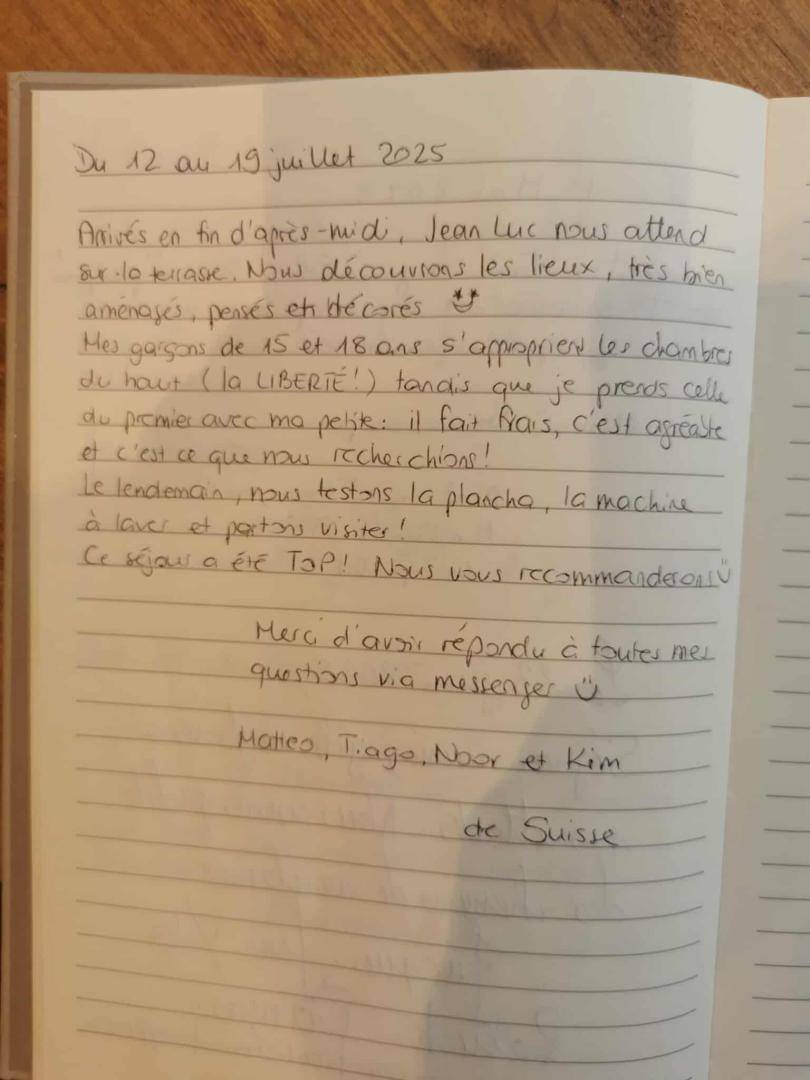 Du 12 au 19 juillet 2025
Arrivés en fin d'après-midi, Jean Luc nous attend
sur la terrasse. Nous découvrons les lieux, très bien
aménagés, pensés et décorés
Mes garçons de 15 et 18 ans s'approprient les chambres
du haut (la LIBERTÉ!) tandis que je prends celle
du premier avec ma petite : il fait frais, c'est agréable
et c'est ce que nous recherchions!
Le lendemain, nous testons la plancha, la machine
à laver et partons visiter!
Ce séjour a été TOP! Nous vous recommanderons
Merci d'avoir répondu à toutes mes
questions via messenger
Matteo, Tiago, Noor et Kim
de Suisse